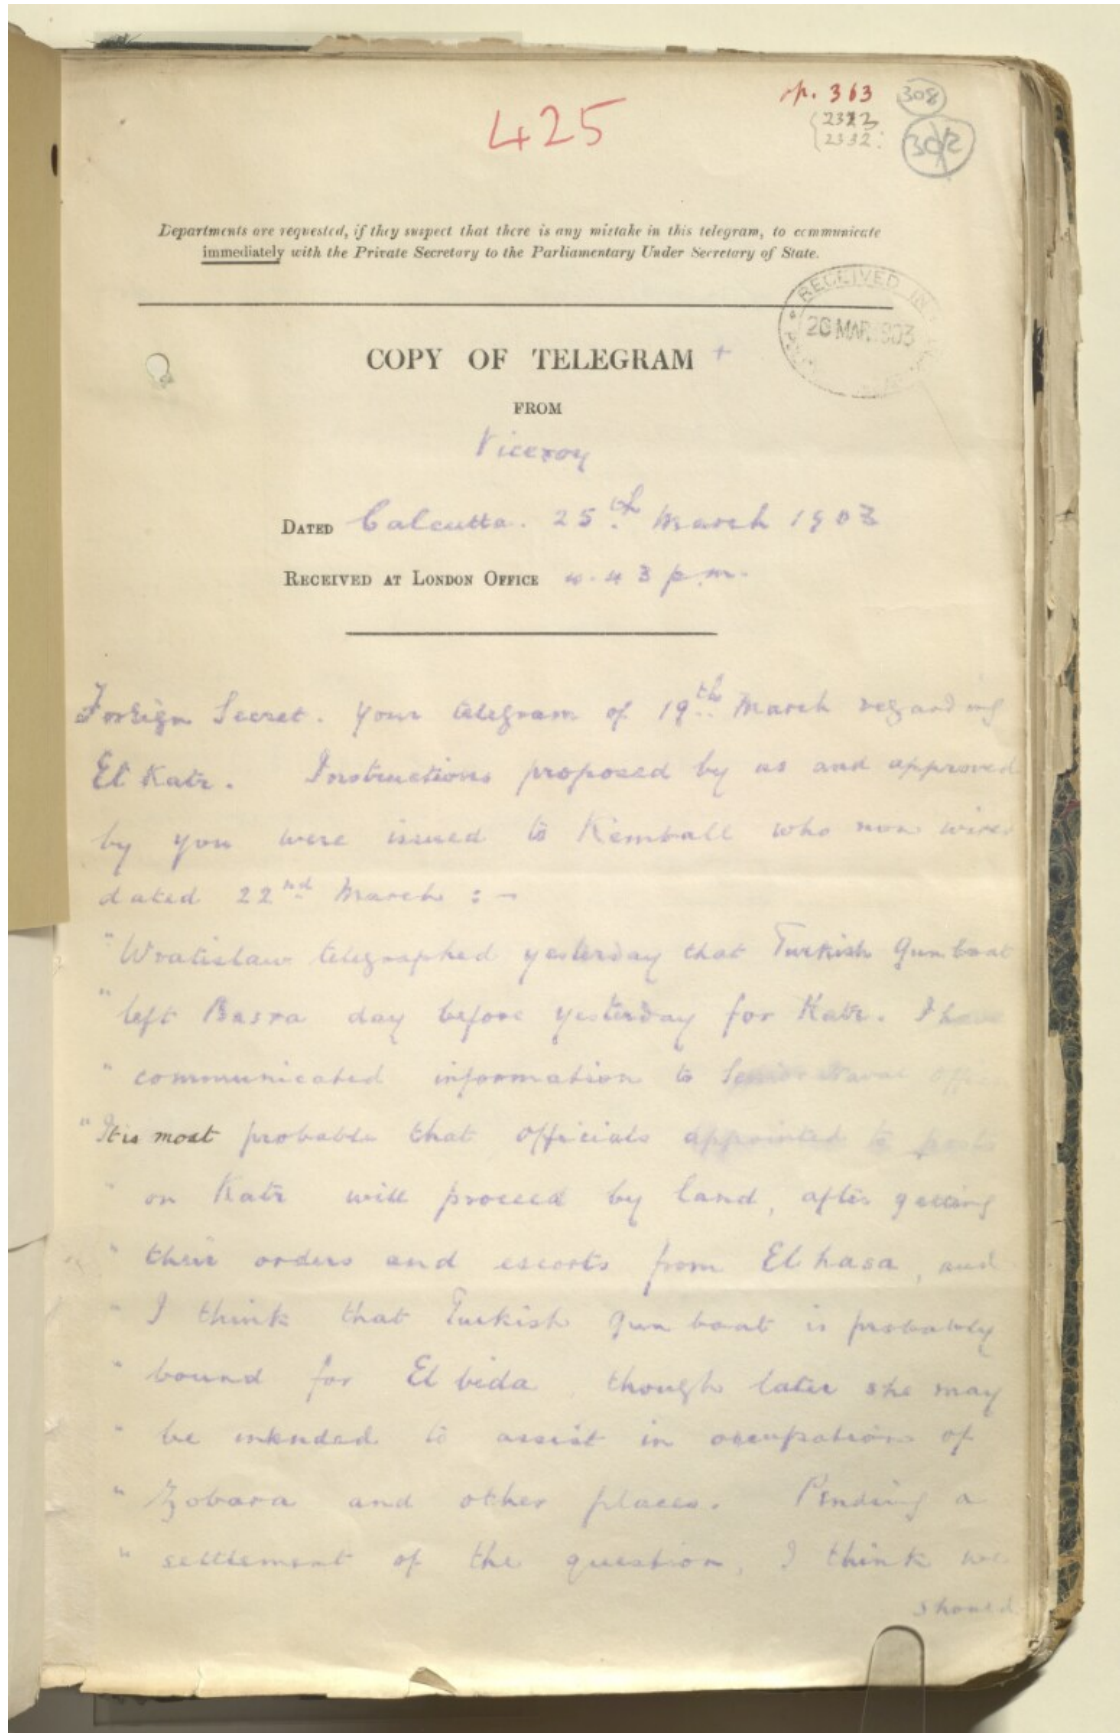 425
p. 363
308
2322
2332
302
Departments are requested, if they suspect that there is any mistake in this telegram, to communicate
immediately with the Private Secretary to the Parliamentary Under Secretary of State.
RECEIVED IN
26 MAR. 1903
COPY OF TELEGRAM +
FROM
Viceroy
DATED Calcutta. 25th March 1903
RECEIVED AT LONDON OFFICE 4.43 p.m.
Foreign Secret. Your telegram of 19th March regarding
El Katr. Instructions proposed by us and approved
by you were issued to Kemball who now wires
dated 22nd March :-
"Wratislaw telegraphed yesterday that Turkish Gunboat
" left Basra day before yesterday for Katr. I have
" communicated information to Senior Naval
"It is most probable that officials appointed to posts
" on Katr will proceed by land, after getting
" their orders and escorts from El hasa, and
" I think that Turkish gun boat is probably
" bound for El bida though later she may
" be intended to assist in occupation of
" Zobara and other places. Pending a
" settlement of the question, I think we
should